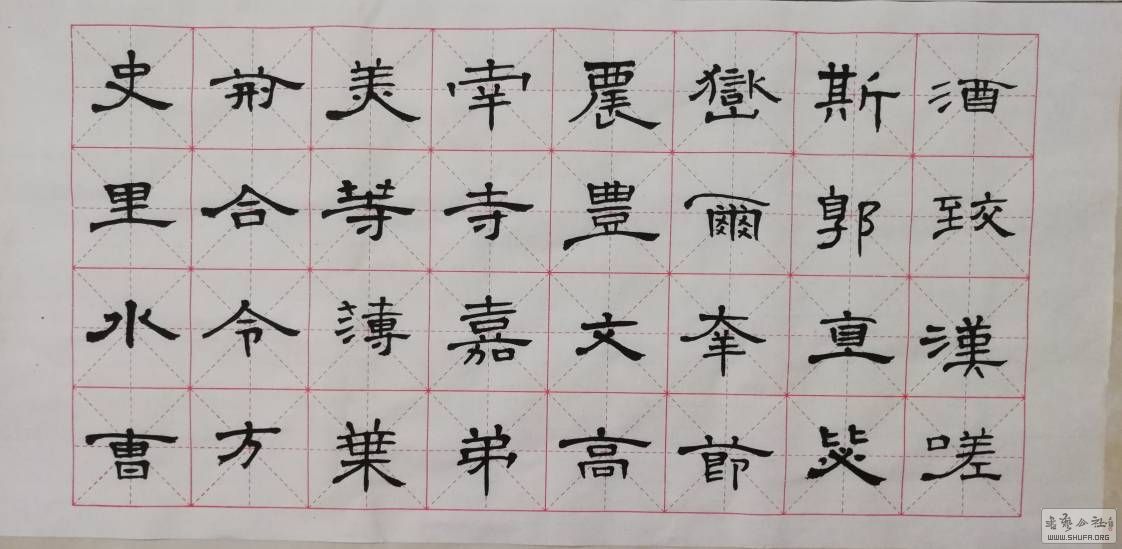 酒致漢嗟
斯郭直
嶽爾奉節
農豐文高
幸寺嘉弟
美等薄葉
荊合令方
史里水曹
書藝公社
WWW.SHUFA.ORG